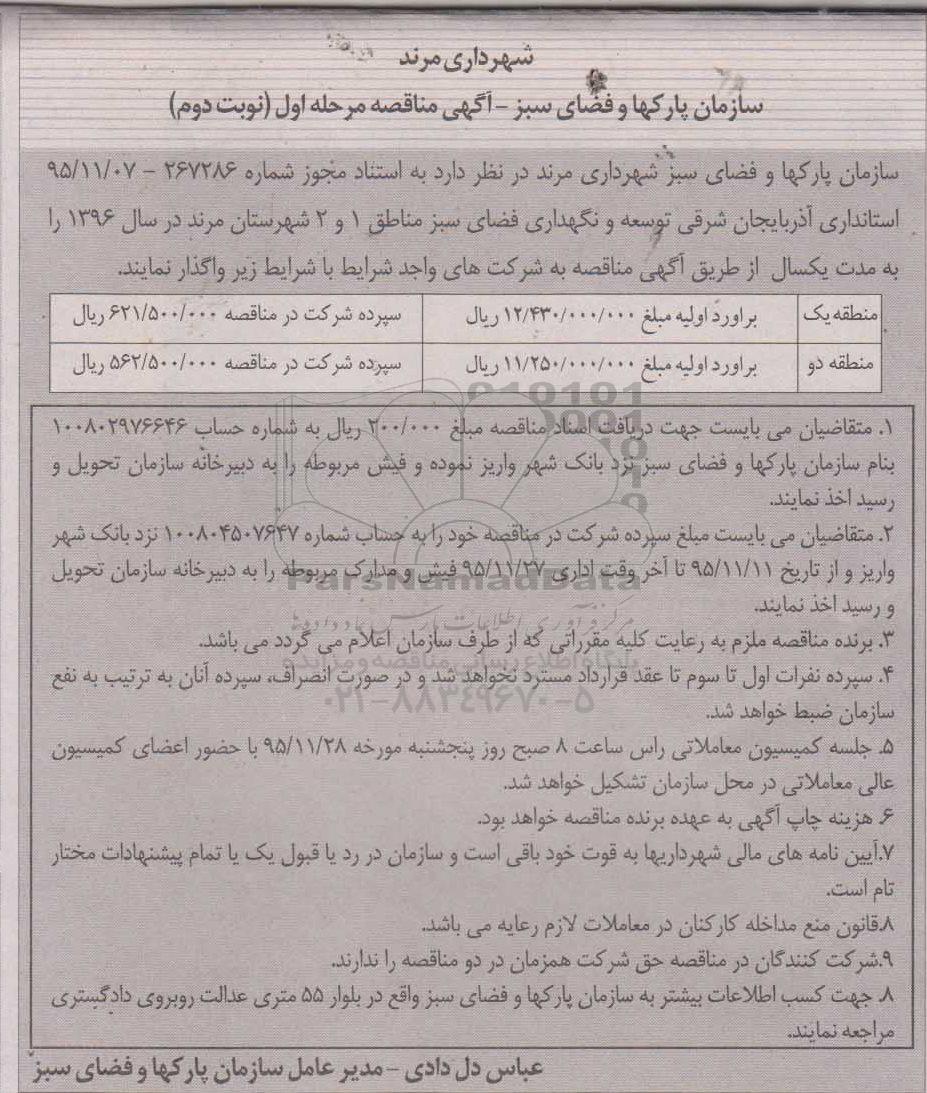 شهرداری مرند
سازمان پارکها و فضای سبز - آگهی مناقصه مرحله اول (نوبت دوم)
سازمان پارکها و فضای سبز شهرداری مرند در نظر دارد به استناد مجوز شماره ۲۶۷۲۸۶ - ۹۵/۱۱/۰۷
استانداری آذربایجان شرقی توسعه و نگهداری فضای سبز مناطق ۱ و ۲ شهرستان مرند در سال ۱۳۹۶ را
به مدت یکسال از طریق آگهی مناقصه به شرکت های واجد شرایط با شرایط زیر واگذار نمایند.
منطقه یک براورد اولیه مبلغ ۱۲/۴۳۰/۰۰۰/۰۰۰ ریال سپرده شرکت در مناقصه ۶۲۱/۵۰۰/۰۰۰ ریال
منطقه دو براورد اولیه مبلغ ۱۱/۲۵۰/۰۰۰/۰۰۰ ریال سپرده شرکت در مناقصه ۵۶۲/۵۰۰/۰۰۰ ریال
۱. متقاضیان می بایست جهت دریافت اسناد مناقصه مبلغ ۲۰۰/۰۰۰ ریال به شماره حساب ۱۰۰۸۰۲۹۷۶۶۴۶
بنام سازمان پارکها و فضای سبز نزد بانک شهر واریز نموده و فیش مربوطه را به دبیرخانه سازمان تحویل و
رسید اخذ نمایند.
۲. متقاضیان می بایست مبلغ سپرده شرکت در مناقصه خود را به حساب شماره ۱۰۰۸۰۴۵۰۷۶۴۷ نزد بانک شهر
واریز و از تاریخ ۹۵/۱۱/۱۱ تا آخر وقت اداری ۹۵/۱۱/۲۷ فیش و مدارک مربوطه را به دبیرخانه سازمان تحویل
و رسید اخذ نمایند.
۳. برنده مناقصه ملزم به رعایت کلیه مقرراتی که از طرف سازمان اعلام می گردد می باشد.
۴. سپرده نفرات اول تا سوم تا عقد قرارداد مسترد نخواهد شد و در صورت انصراف، سپرده آنان به ترتیب به نفع
سازمان ضبط خواهد شد.
۵. جلسه کمیسیون معاملاتی راس ساعت ۸ صبح روز پنجشنبه مورخه ۹۵/۱۱/۲۸ با حضور اعضای کمیسیون
عالی معاملاتی در محل سازمان تشکیل خواهد شد.
۶. هزینه چاپ آگهی به عهده برنده مناقصه خواهد بود.
۷.آیین نامه های مالی شهرداریها به قوت خود باقی است و سازمان در رد یا قبول یک یا تمام پیشنهادات مختار
تام است.
۸.قانون منع مداخله کارکنان در معاملات لازم رعایه می باشد.
۹.شرکت کنندگان در مناقصه حق شرکت همزمان در دو مناقصه را ندارند.
۸. جهت کسب اطلاعات بیشتر به سازمان پارکها و فضای سبز واقع در بلوار ۵۵ متری عدالت روبروی دادگستری
مراجعه نمایند.
عباس دل دادی - مدیر عامل سازمان پارکها و فضای سبز
ParsNamadData
پایگاه اطلاع رسانی مناقصه و مزایده
۰۲۱-۸۸۳۴۹۶۷۰-۵